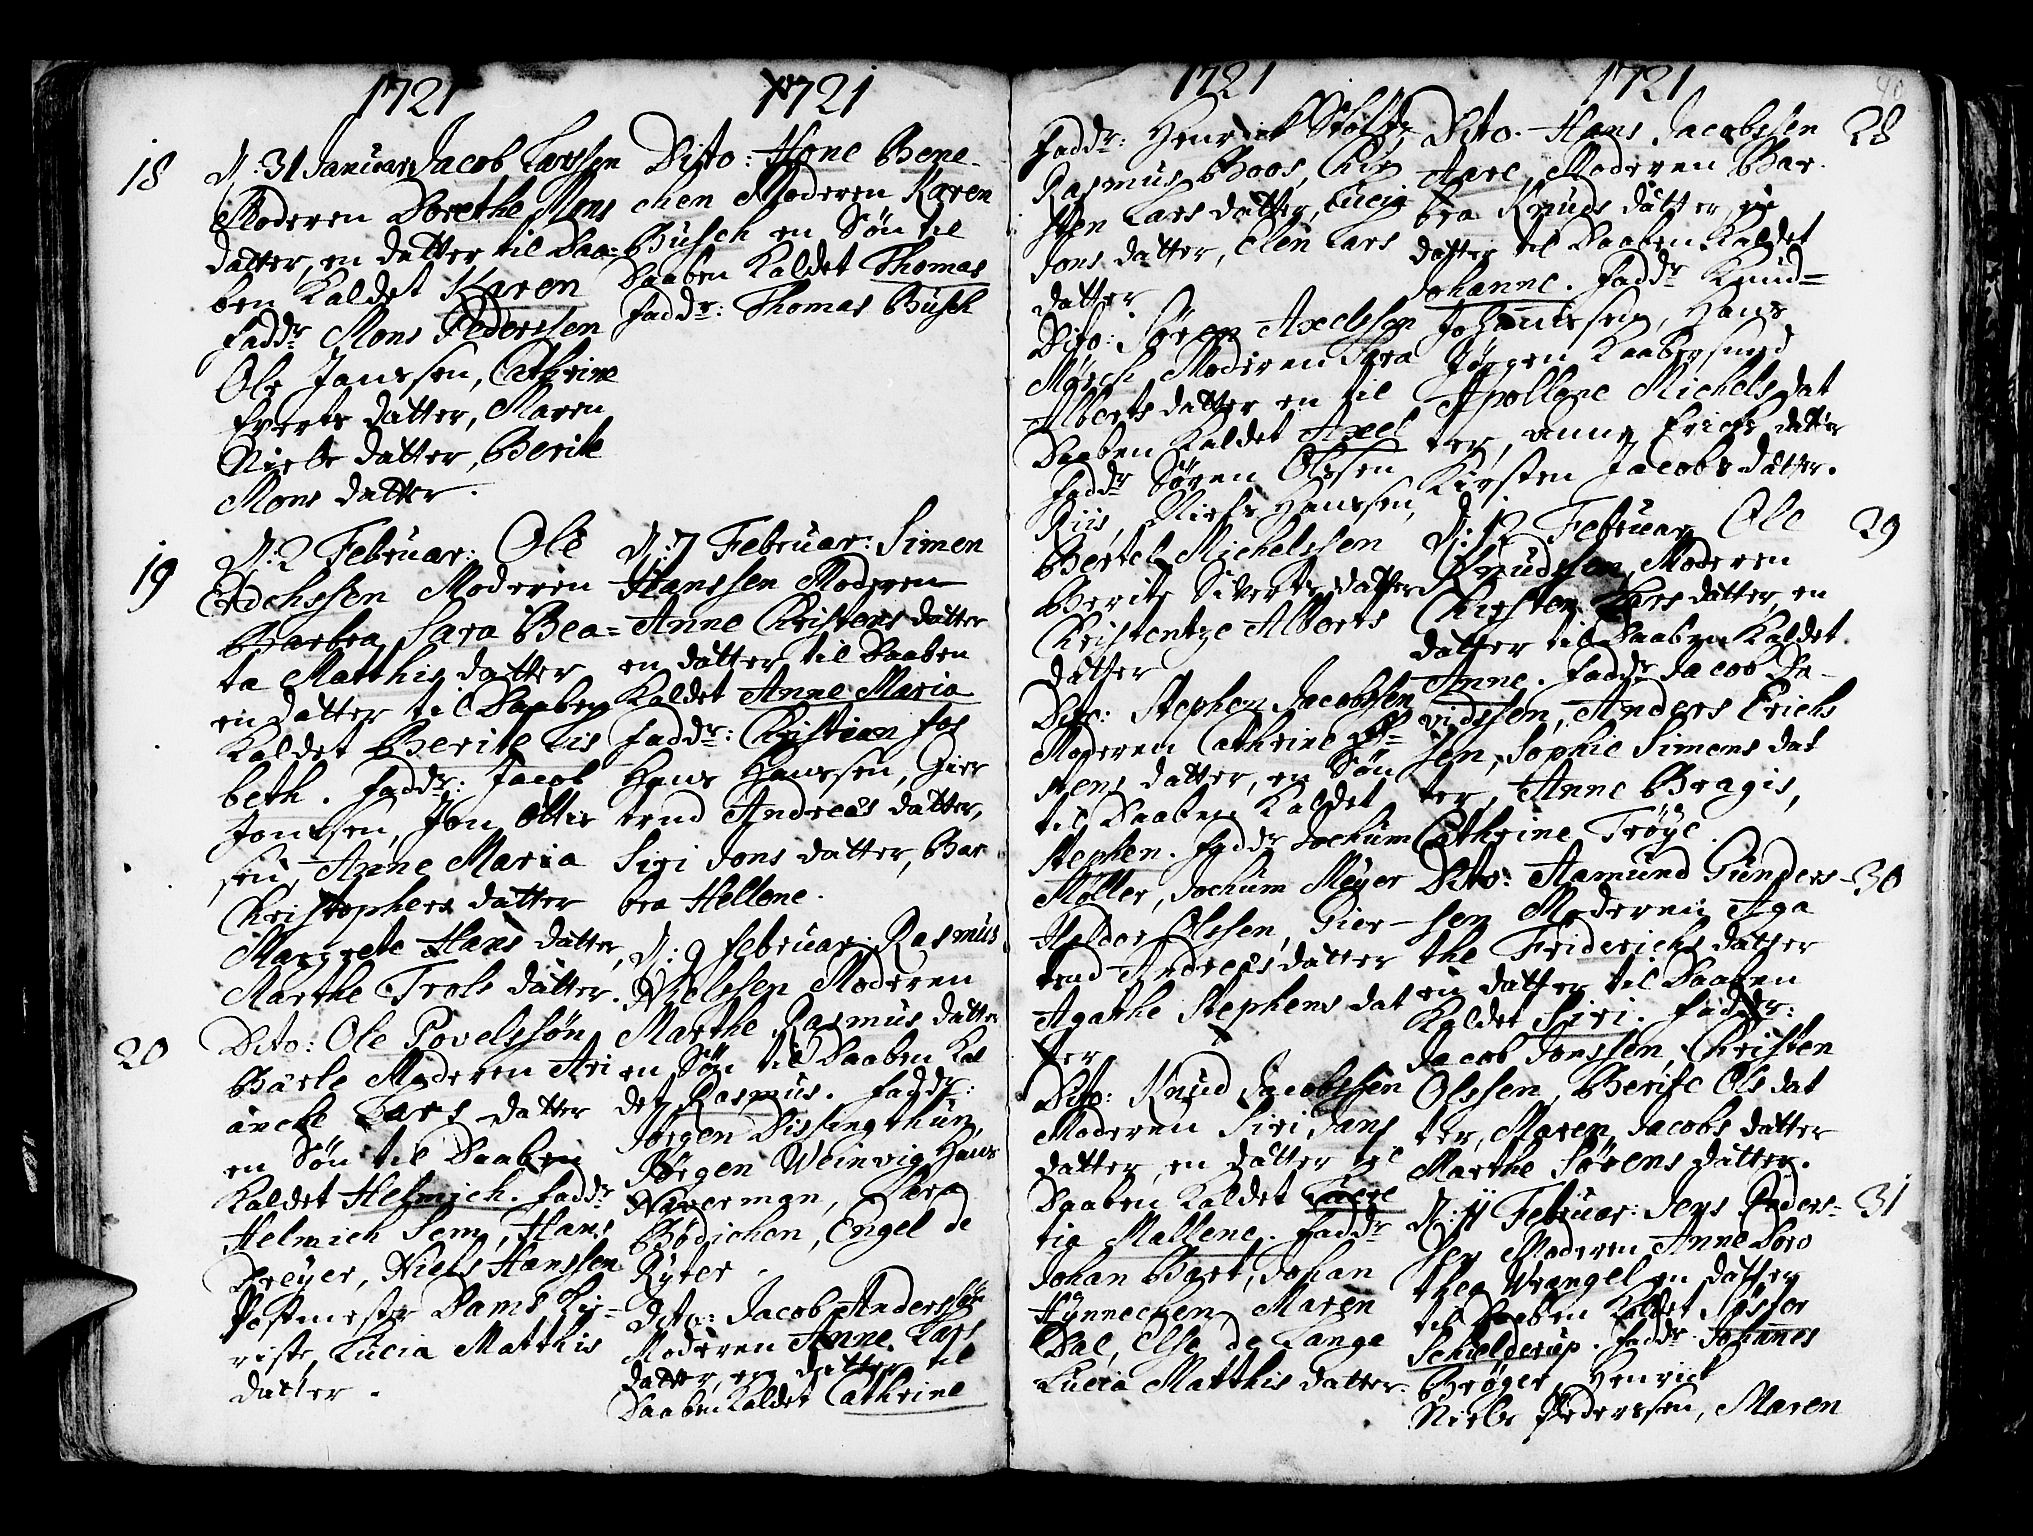 1721
18
D: 31 Januar: Jacob Larssen
Moderen Dorethe Mons
datter, en datter til Daa=
ben Kaldet Karen
Faddr Mons Pederssen
Ole Janssen, Cathrine
Everts datter, Maren
Niels datter, Berite
Mons datter.
19
D: 2 Februar: Ole
Moderen
Barbra Sara Bea=
ta Matthis datter
en datter til Daaben
Kaldet Berite Lis
beth. Faddr: Jacob
Jonssen, Jon Ottis
sen, Anne Maria
Christophers datter
Margrete Hans datter,
Marthe Trols datter.
20
Dito: Ole Povelssøn
Bärle Moderen Ari
ancke Lars datter
en Søn til Daaben
Kaldet Helmich. Faddr
Helmich Sem, Hans
Dreyer, Niels Hanssen
Postmester Dams
Lucia Matthis
datter.
1721
Dito: Hone Bene-
chen Moderen Karen
Busch en Søn til
Daaben Kaldet Thomas
Faddr: Thomas Busch
D: 7 Februar: Simen
Hanssen Moderen
Anne Christens datter
en datter til Daaben
Kaldet Anne Maria
Faddr: Christian Fos
Hans Hanssen, Gier
trud Andreas datter,
Siri Jons datter, Bar
bra Hellene.
D: 9 Februar: Rasmus
Nielssen Moderen
Marthe Rasmus datter
en Søn til Daaben Kal
det Rasmus. Faddr:
Jørgen Dissingthun,
Jørgen Weinvig, Hans
Haverman,
Bødichen, Engel de
Ryter.
Dito: Jacob Anderssøn
Moderen Anne Lars
datter, en datter til
Daaben Kaldet Cathrine
1721
Faddr: Henrick Stolt,
Rasmus Boos, Kir
sten Lars datter, Lucia
Jons datter, Elen Lars
datter
Dito: Søren Axelssen
Mørch Moderen Sara
Alberts datter en til
Daaben Kaldet Axel
Faddr Søren Olssen
Riis, Niels Hanssen,
Bertel Michelssen
Berite Siverts datter
Christentze Alberts
datter
Dito: Stephen Jacobssen
Moderen Cathrine
stens datter, en Søn
til Daaben Kaldet
Stephen. Faddr Jochum
Møller, Jochum Meyer
Haldor Olssen, Gier-
trud Andreas datter
Agathe Stephens dat
ter
Dito: Knud Jacobssen
Moderen Siri Jans
datter, en datter til
Daaben Kaldet
tia Mallene. Faddr
Johan Bart, Johan
Hynnechen, Maren
Dal, Else de Lange
Lucia Matthis datter.
1721
40
28
Dito. Hans Jacobssen
Aare, Moderen Bar
bra Knuds datter, en
datter til Daaben Kaldet
Johanne. Faddr Knud=
Johannissen, Hans
Jørgen Kaabersmed
Apollone Michels dat
ter, Anne Erichs datter
Kirsten Jacobs datter.
29
D: 12 Februar Ole
Knudssen, Moderen
Chirsten Lars datter, en
datter til Daaben Kaldet
Anne. Faddr Jacob Da-
vidssen, Anders Erichs
sen, Sophie Simens dat
ter, Anne Bragis,
Cathrine Trøye.
30
Dito: Aamund Gunders-
sen Moderen Aga
the Friderichs datter
en datter til Daaben
Kaldet Siri. Faddr:
Jacob Jonssen, Christen
Olssen, Berite Ols dat
ter, Maren Jacobs datter
Marthe Sørens datter.
31
D: 11 Februar: Jens Peders=
sen Moderen Anne Doro
thea Wrangel en datter
til Daaben Kaldet
Schielderup. Faddr Johannes
Brøger, Henrick
Niels Pederssen, Maren